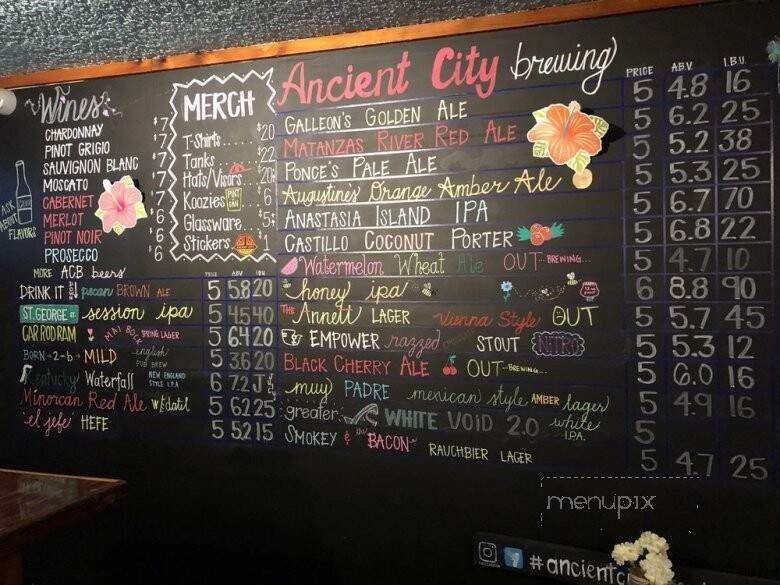 Wines
CHARDONNAY $7
PINOT GRIGIO $7
SAUVIGNON BLANC $7
MOSCATO $7
CABERNET $7
MERLOT $6
PINOT NOIR 6
PROSECCO 6
ASK ABOUT FLAVORS
MERCH
T-Shirts.... $20
Tanks.... $22
Hats/Visors. 20
Koozies PINT CAN 6
Glassware. $5
Stickers. $1
MORE ACB beers PRICE ABV IBU
DRINK IT pecan BROWN ALE 5 5.8 20
ST. GEORGE ST. session ipa 5 4.5 40
CAR ROD RAM MAI BOCK SPRING LAGER 5 6.4 20
BORN -2-b- MILD english PUB BREW 5 3.6 20
Kentucky Waterfall NEW ENGLAND STYLE I.P.A 6 7.2
Minorcan Red Ale w/datil 5 6.2 25
'el jefe' HEFE 5 5.2 15
Ancient City brewing PRICE A.B.V. I.B.U.
GALLEON'S GOLDEN ALE 5 4.8 16
MATANZAS RIVER RED ALE 5 6.2 25
PONCE'S PALE ALE 5 5.2 38
Augustine's Orange Amber Ale 5 5.3 25
ANASTASIA ISLAND IPA 5 6.7 70
CASTILLO COCONUT PORTER 5 6.8 22
Watermelon Wheat Ale OUT BREWING... 5 4.7 10
honey ipa 6 8.8 90
THE Annett LAGER Vienna Style OUT 5 5.7 45
EMPOWER razzed STOUT NITRO 5 5.3 12
BLACK CHERRY ALE OUT-BREWING... 5 6.0 16
muy PADRE mexican style AMBER lager 5 4.9 16
greater WHITE VOID 2.0 white I.P.A. 5
SMOKEY & the BACON RAUCHBIER LAGER 5 4.7 25
menupix
#ancientci